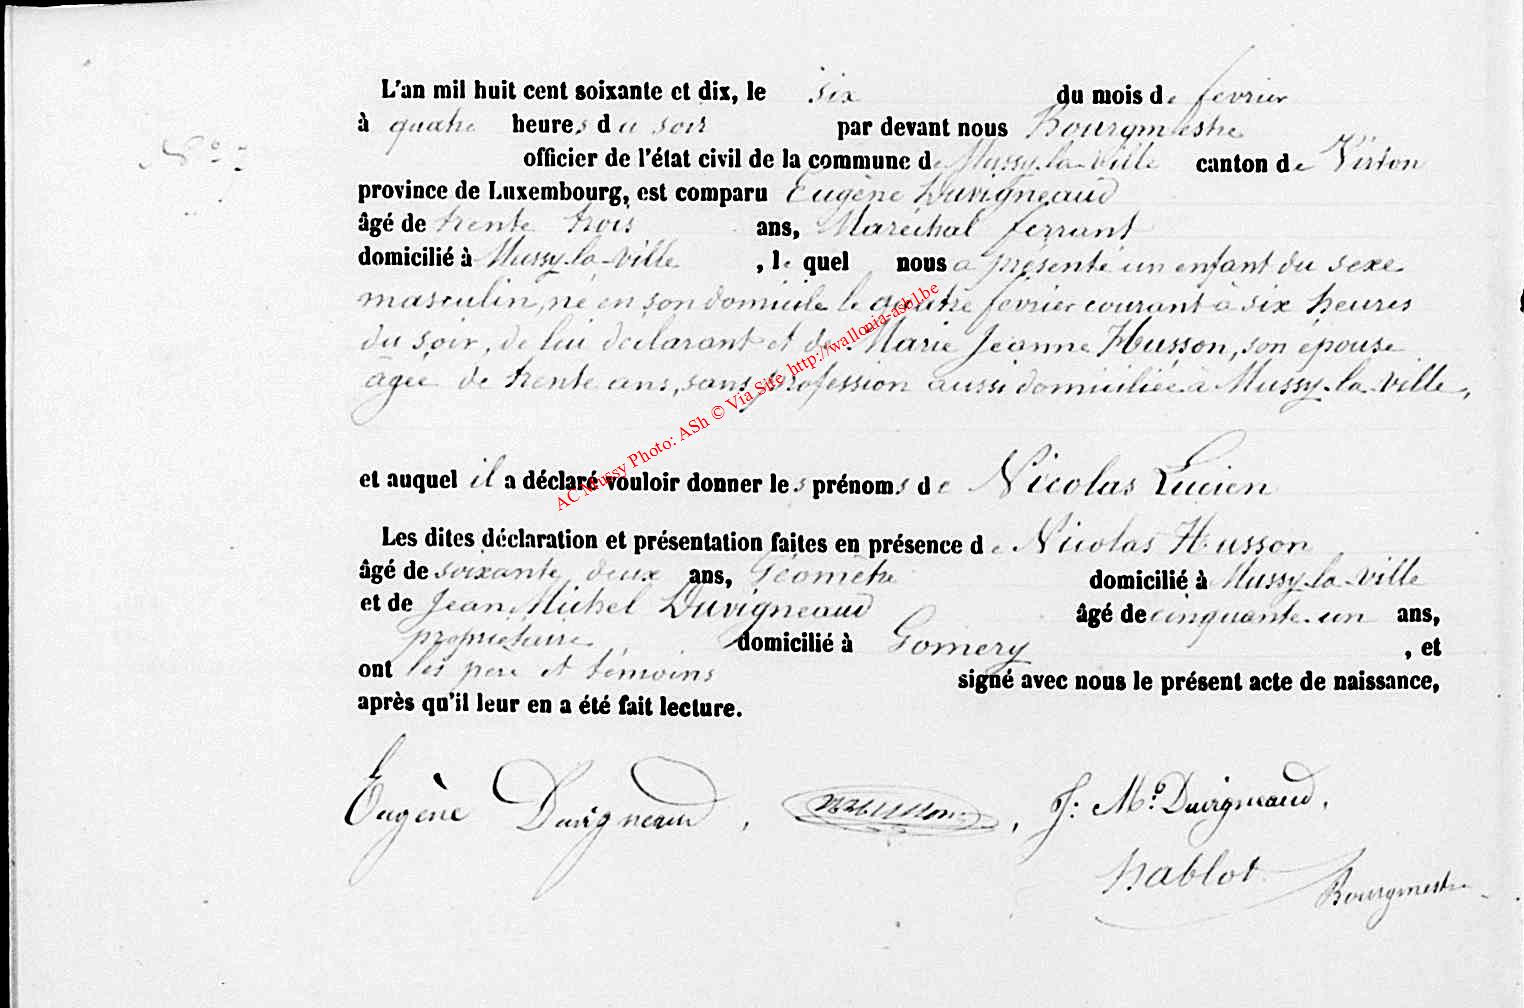 L'an mil huit cent soixante et dix, le six du mois de fevrier
à quatre heures du soir par devant nous Bourgmestre
officier de l'état civil de la commune de Mussy-la-Ville canton de Virton
province de Luxembourg, est comparu Eugène Duvigneaud
âgé de trente trois ans, Maréchal ferrant
domicilié à Mussy-la-Ville, le quel nous a présenté un enfant du sexe
masculin, né en son domicile le quatre fevrier courant à six heures
du soir, de lui déclarant et de Marie Jeanne Husson, son épouse
âgée de trente ans, sans profession aussi domiciliée à Mussy-la-Ville,
et auquel il a déclaré vouloir donner les prénoms de Nicolas Lucien
Les dites déclaration et présentation faites en présence de Nicolas Husson
âgé de soixante deux ans, Géomètre domicilié à Mussy-la-Ville
et de Jean Michel Duvigneaud âgé de cinquante-un ans,
propriétaire domicilié à Gomery, et
ont les père et témoins signé avec nous le présent acte de naissance,
après qu'il leur en a été fait lecture.
Eugène Duvigneaud, J: M. Duvigneaud,
Hablot Bourgmestre
AC Mussy Photo: ASh © Via Site http://wallonia-asbl.be